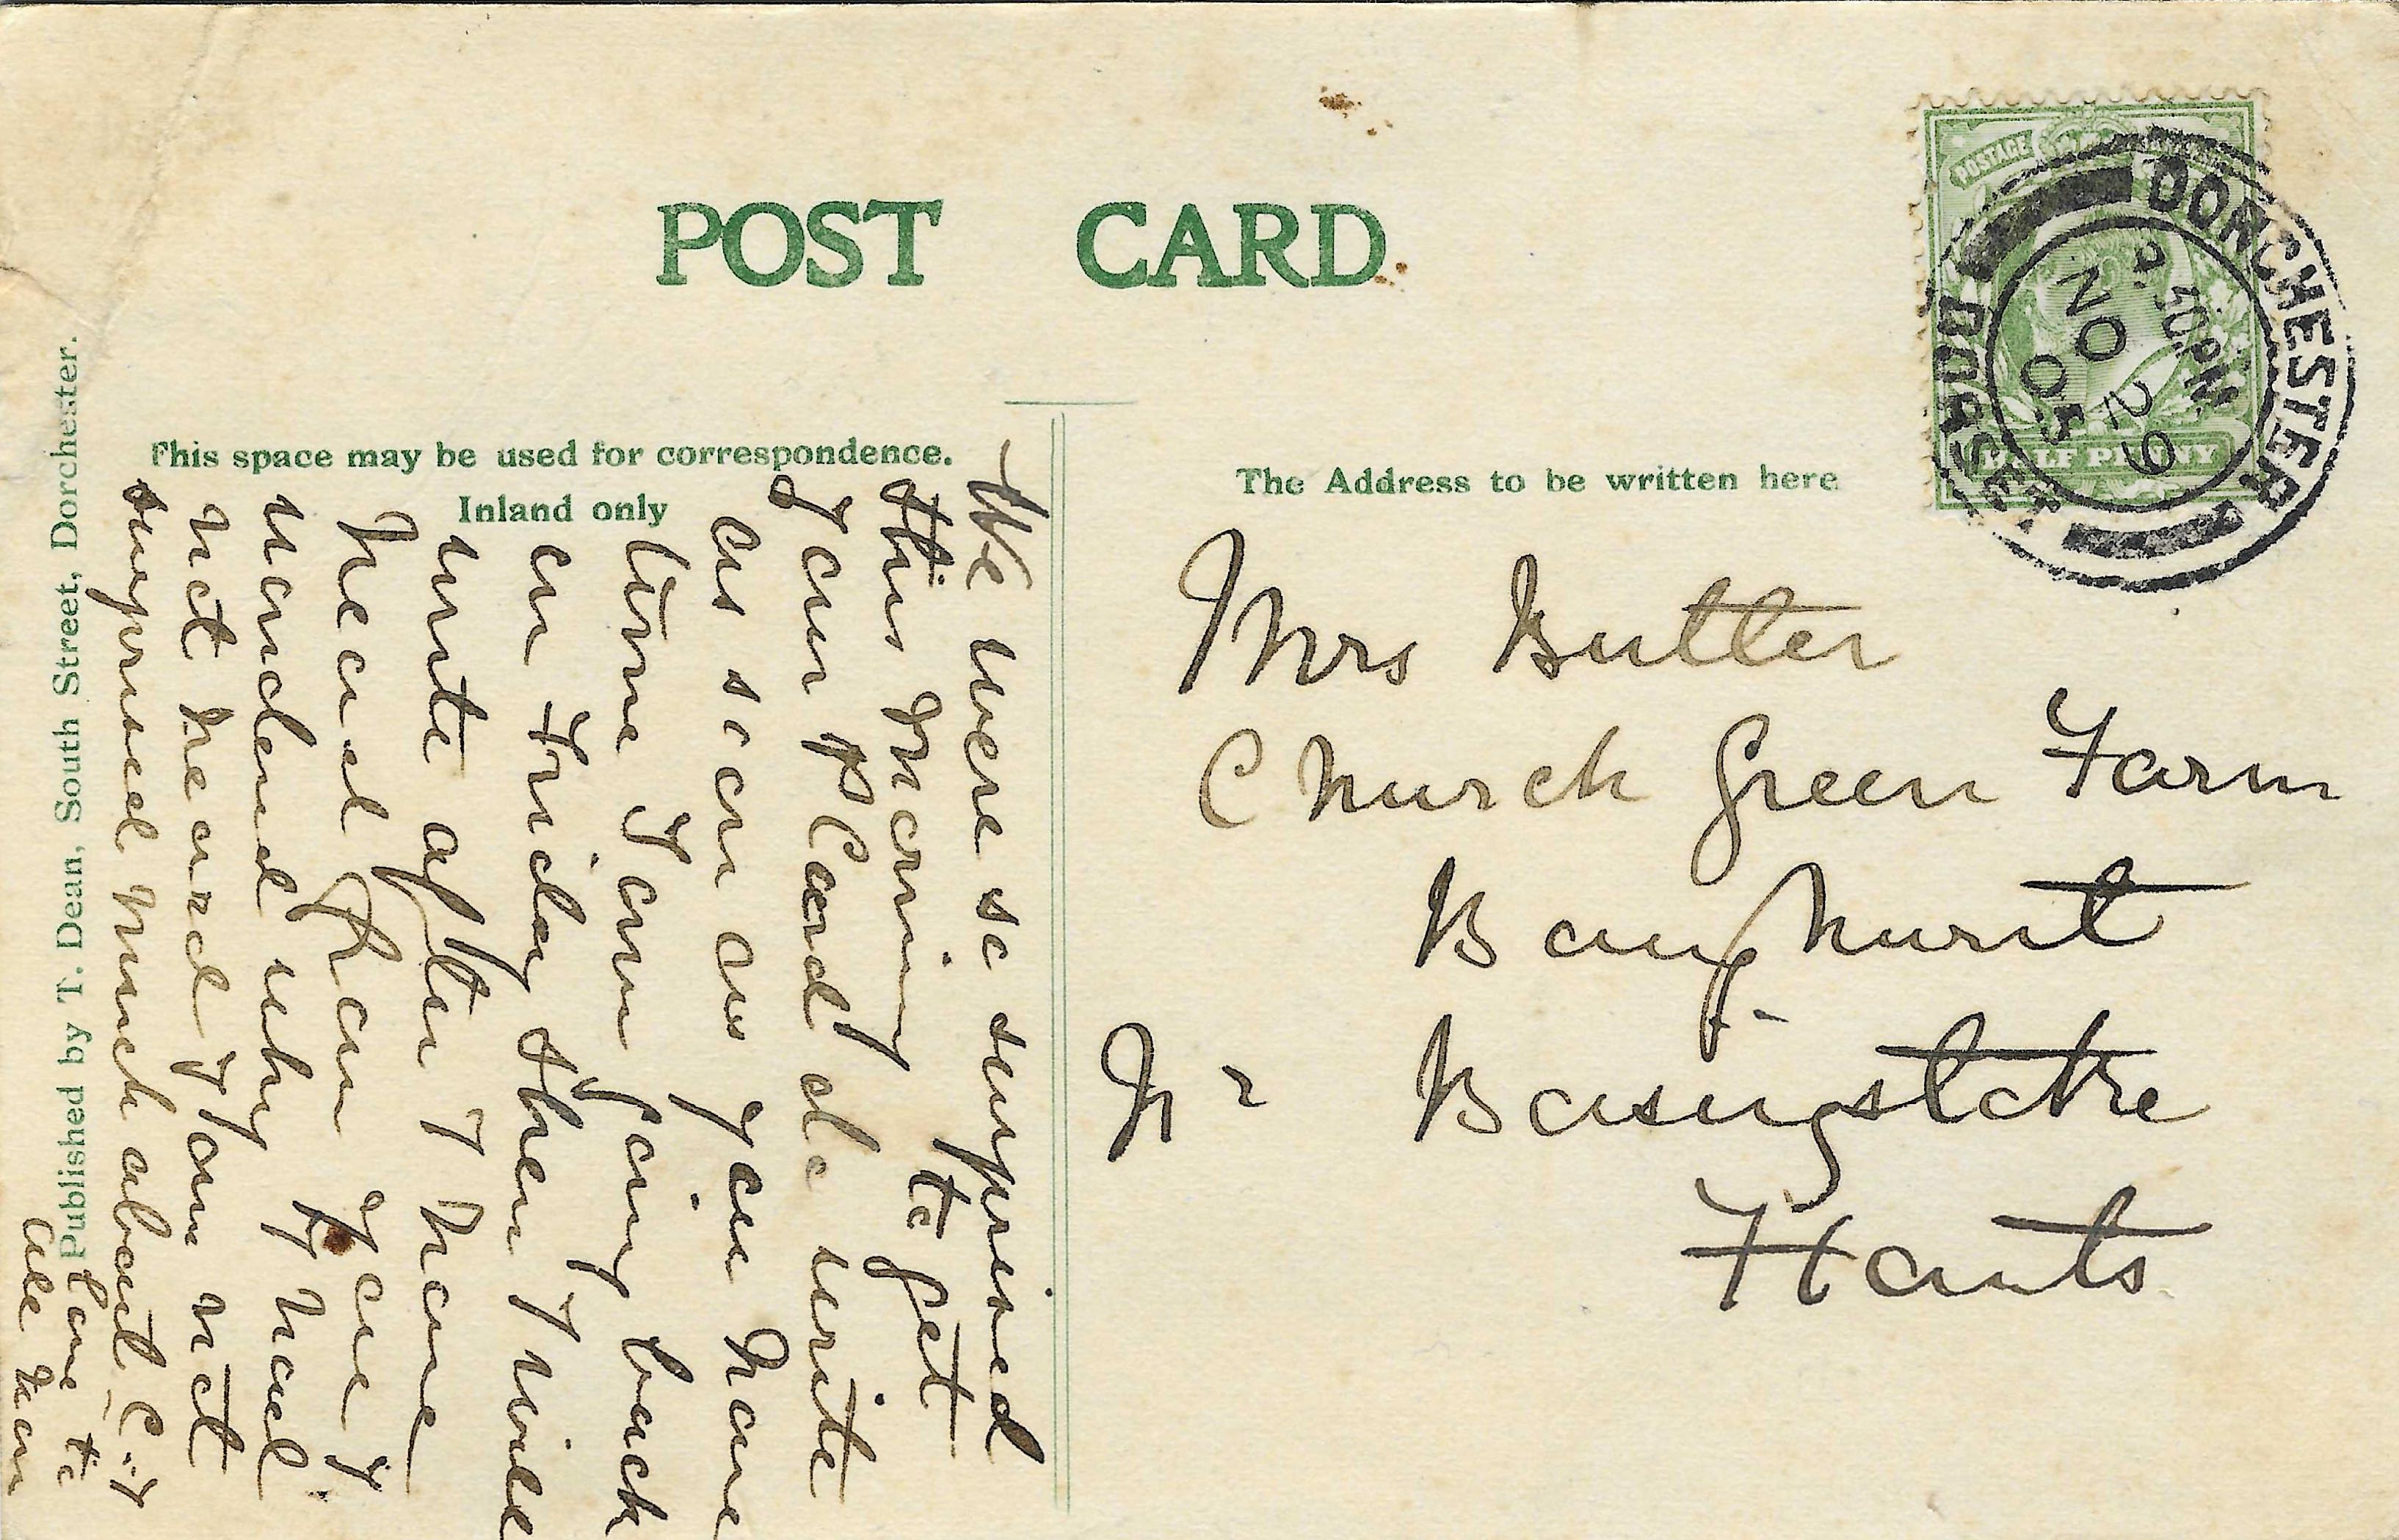 POST CARD
Published by T. Dean, South Street, Dorchester.
This space may be used for correspondence.
Inland only
The Address to be written here
POSTAGE
HALF PENNY
DORCHESTER
DORSET
2. 50 PM
NO 29
05
Mrs Butler
Church Green Farm
Baughurst
Nr Basingstoke
Hants
We were so surprised
this morning to get
your p Card do write
as soon as you have
time I am going back
on Friday then I will
write after I have
heard from you I
wondered why I had
not heard I am not
surprised much about C.J
love to
all from